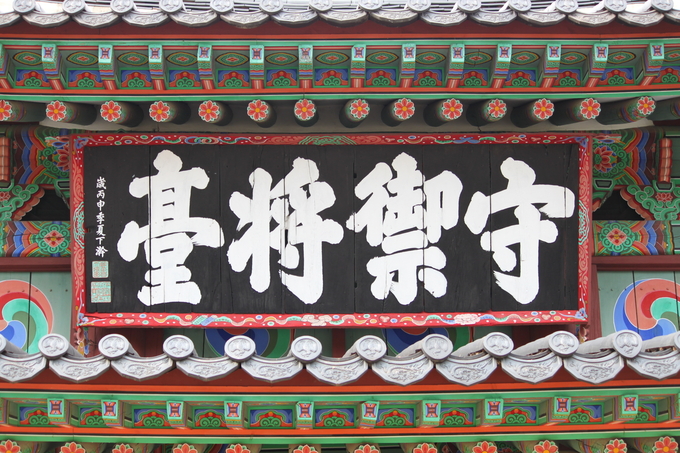 守禦將臺
歲丙申季夏下澣